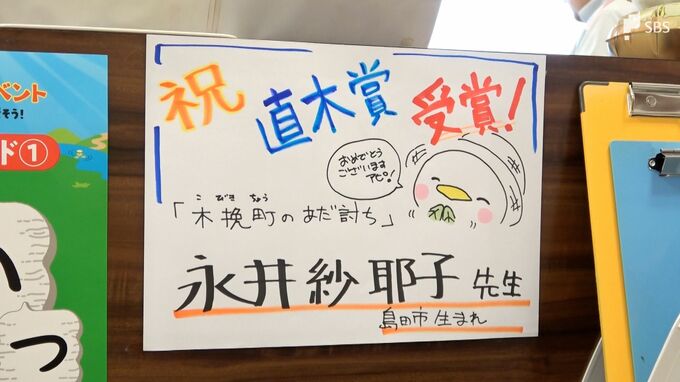 SBS
祝 直木賞 受賞!
おめでとう
ございます
「木挽町のあだ討ち」
こびきちょう
永井紗耶子 先生
島田市生まれ
ベント
そう!
ド①
っ